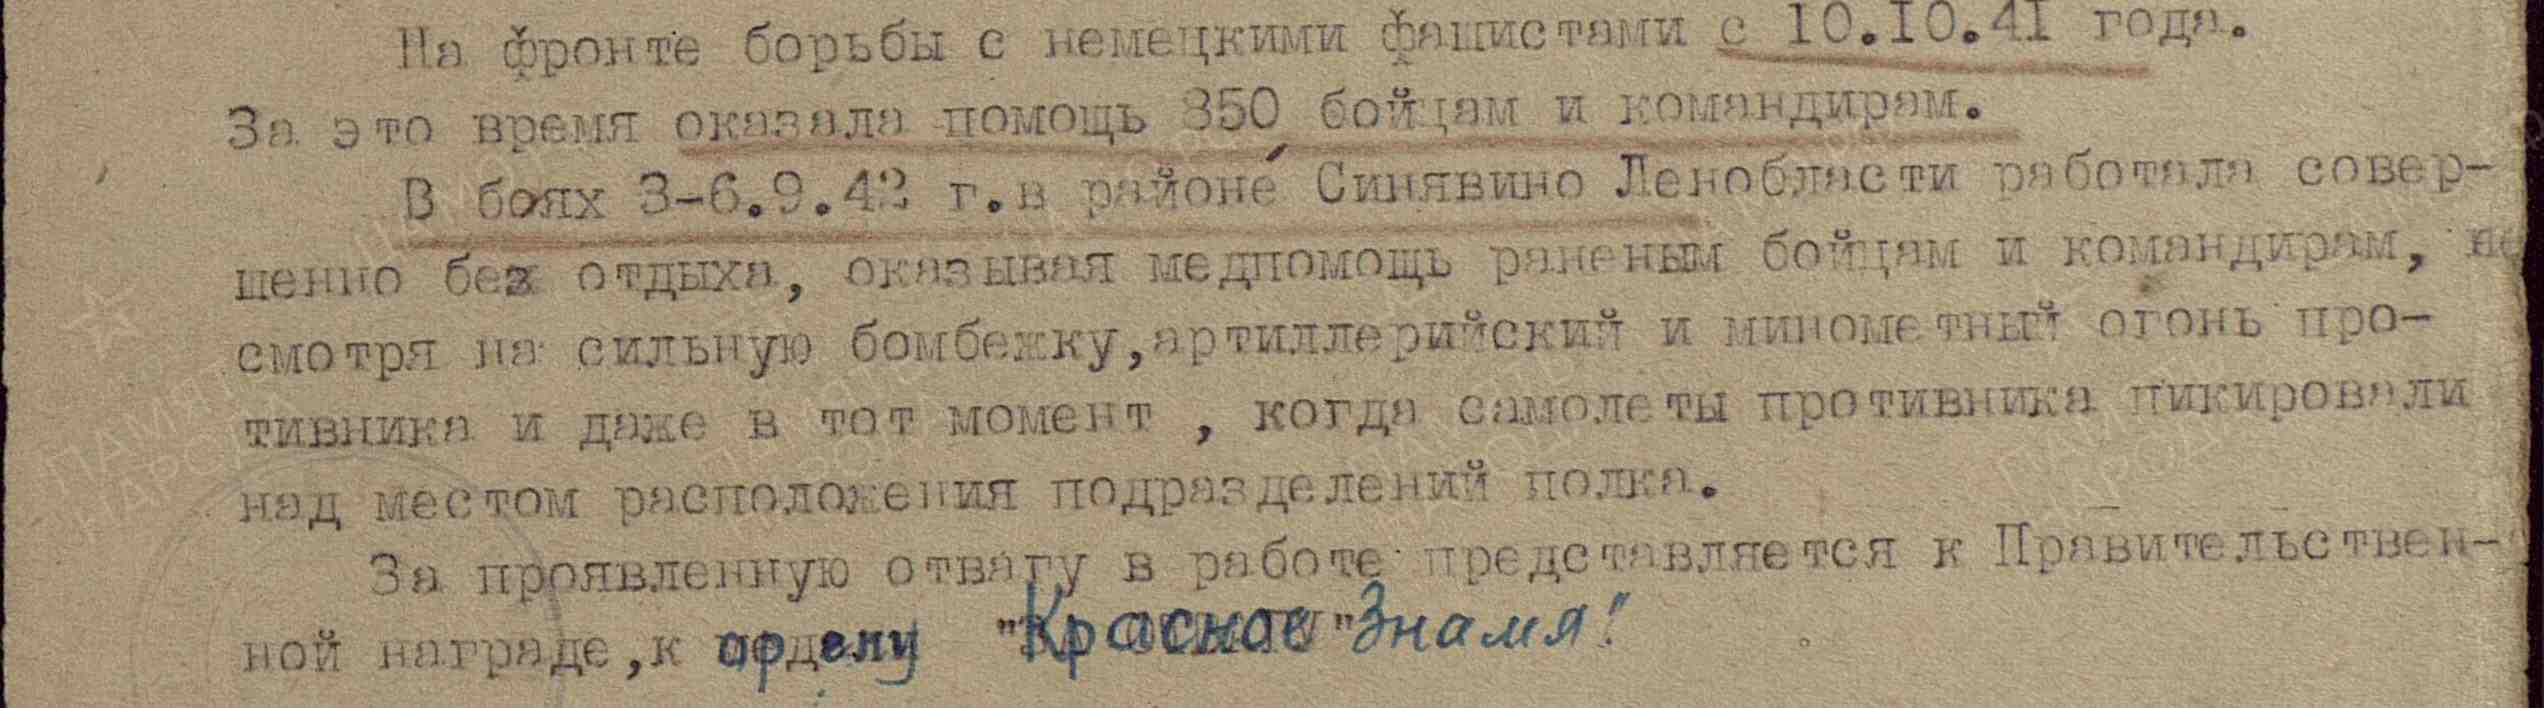 На фронте борьбы с немецкими фашистами с 10.10.41 года.
За это время оказала помощь 350 бойцам и командирам.
В боях 3-6.9.42 г.в районе Синявино Ленобласти работала совер-
шенно без отдыха, оказывая медпомощь раненым бойцам и командирам, не
смотря на сильную бомбежку,артиллерийский и минометный огонь про-
тивника и даже в тот момент , когда самолеты противника пикировали
над местом расположения подразделений полка.
За проявленную отвагу в работе представляется к Правительствен-
ной награде,к ордену "Красное "Знамя!